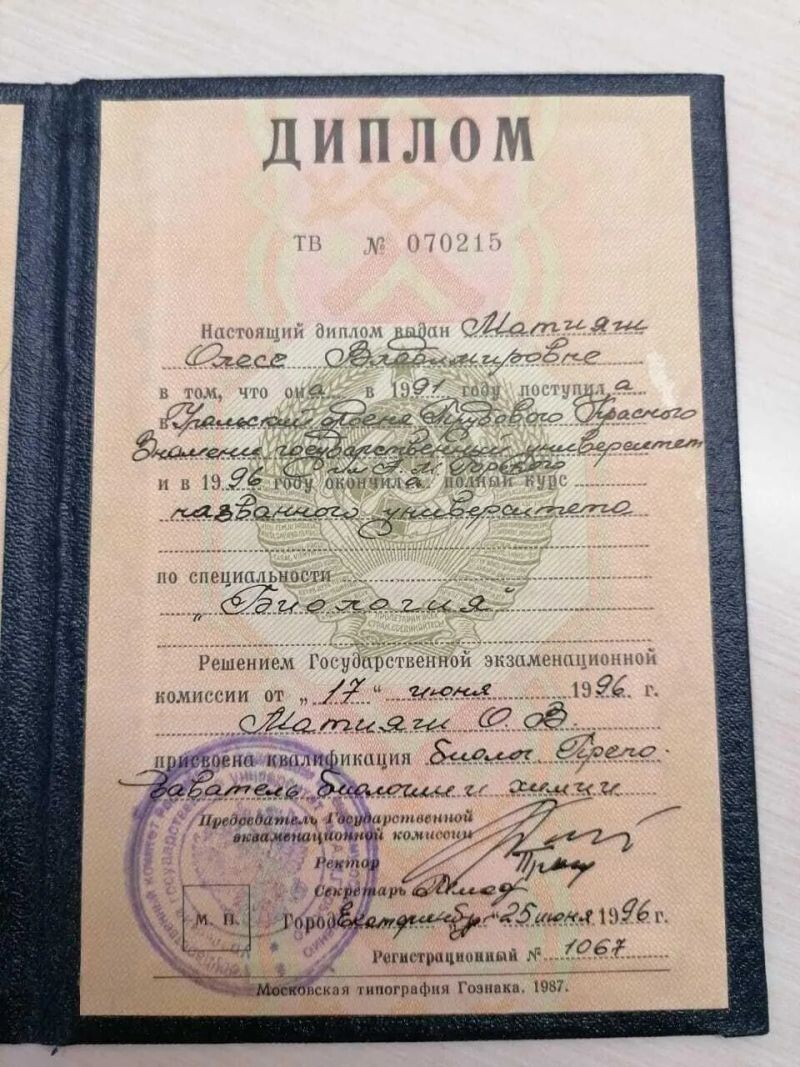 ДИПЛОМ
ТВ № 070215
Настоящий диплом выдан Матияш
Олесе Владимировне
в том, что она в 1991 году поступила
в Уральский ордена Трудового Красного
Знамени государственный университет
им А. М. Горького
и в 1996 году окончила полный курс
названного университета
по специальности
„Биология"
Решением Государственной экзаменационной
комиссии от „17" июня 1996 г.
Матияш О. В.
присвоена квалификация Биолог. Препо-
даватель биологии и химии
Председатель Государственной
экзаменационной комиссии
Ректор
Секретарь
М. П.
Город Екатеринбург 25 июня 1996 г.
Регистрационный № 1067
Московская типография Гознака. 1987.